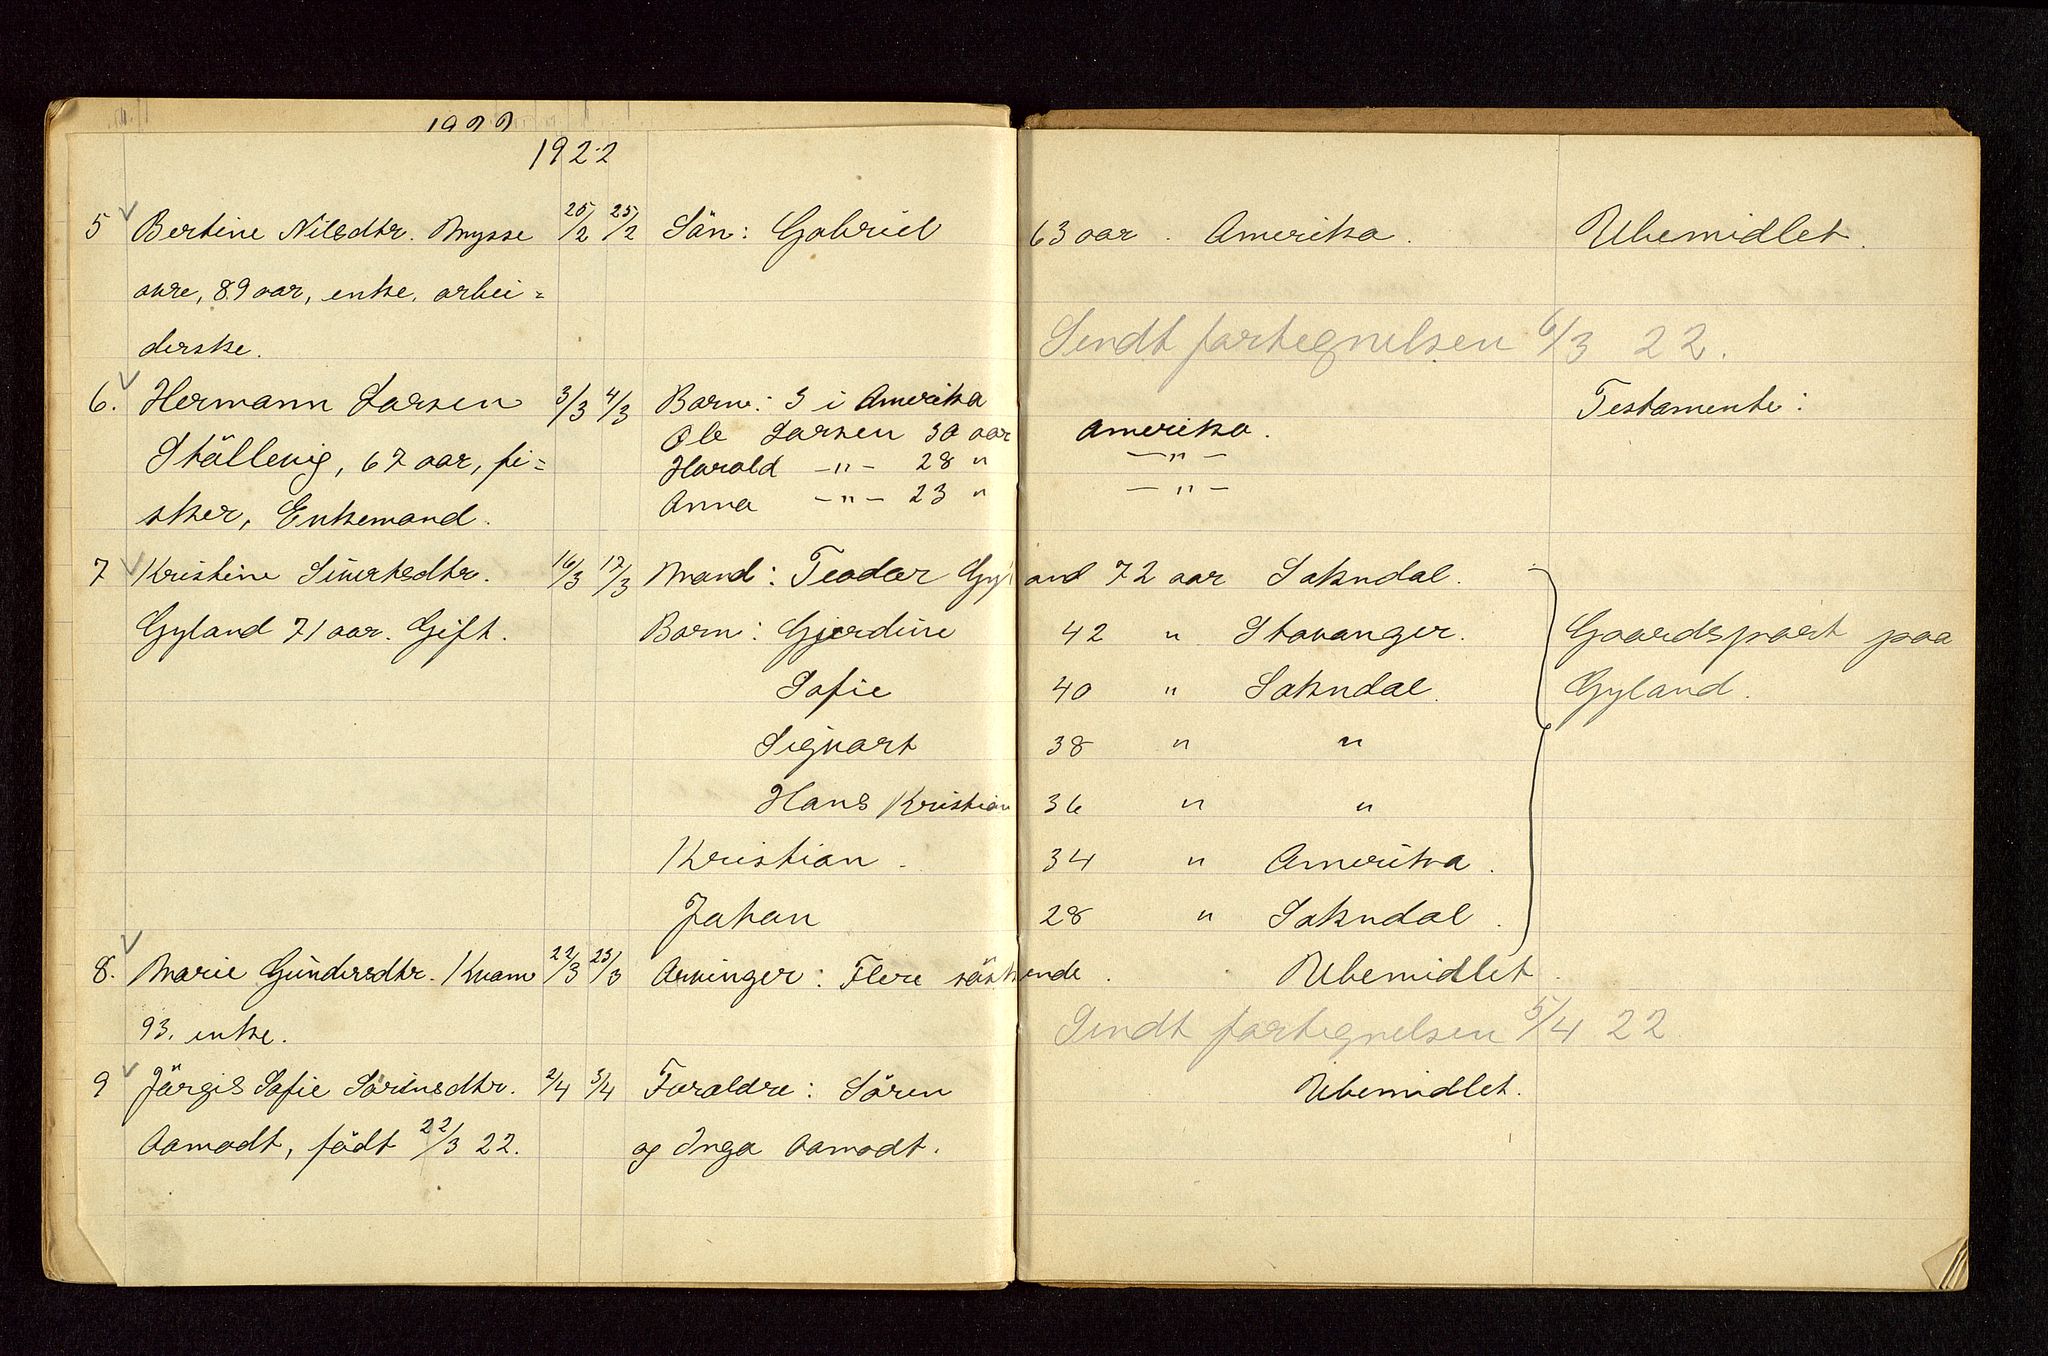 1922
1922
5 Bertine Nilsdtr. Mysse 25/2 25/2 Sön: Gabriel 63 aar. Amerika. Ubemidlet.
akre, 89 aar, enke, arbei=
derske. Sendt fortegnelsen 6/3 22.
6. Hermann Larsen 3/3 4/3 Barn: 3 i Amerika Testamente:
Ole Larsen 30 aar Amerika.
Stöllevig, 67 aar, fi= Harald —„— 28 " —„—
sker, Enkemand. Anna —„— 23 " —„—
7 Kristine Sivertsdtr. 16/3 17/3 Mand: Teodor Gyland 72 aar Sokndal.
Gyland 71 aar. Gift. Barn: Gjerdine 42 " Stavanger. Gaardspart paa
Sofie 40 " Sokndal. Gyland.
Sigvart 38 " "
Hans Kristian 36 " "
Kristian. 34 " Amerika.
Johan 28 " Sokndal.
8. Marie Gundersdtr. Kvam 22/3 23/3 Arvinger: Flere söskende. Ubemidlet.
93. enke. Sendt fortegnelsen 5/4 22
9 Jörgis Sofie Sörensdtr. 2/4 3/4 Foraldre: Sören Ubemidlet.
Aamodt, födt 22/3 22. og Inga Aamodt.